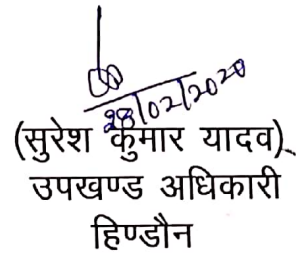 28/02/2020
(सुरेश कुमार यादव)
उपखण्ड अधिकारी
हिण्डौन